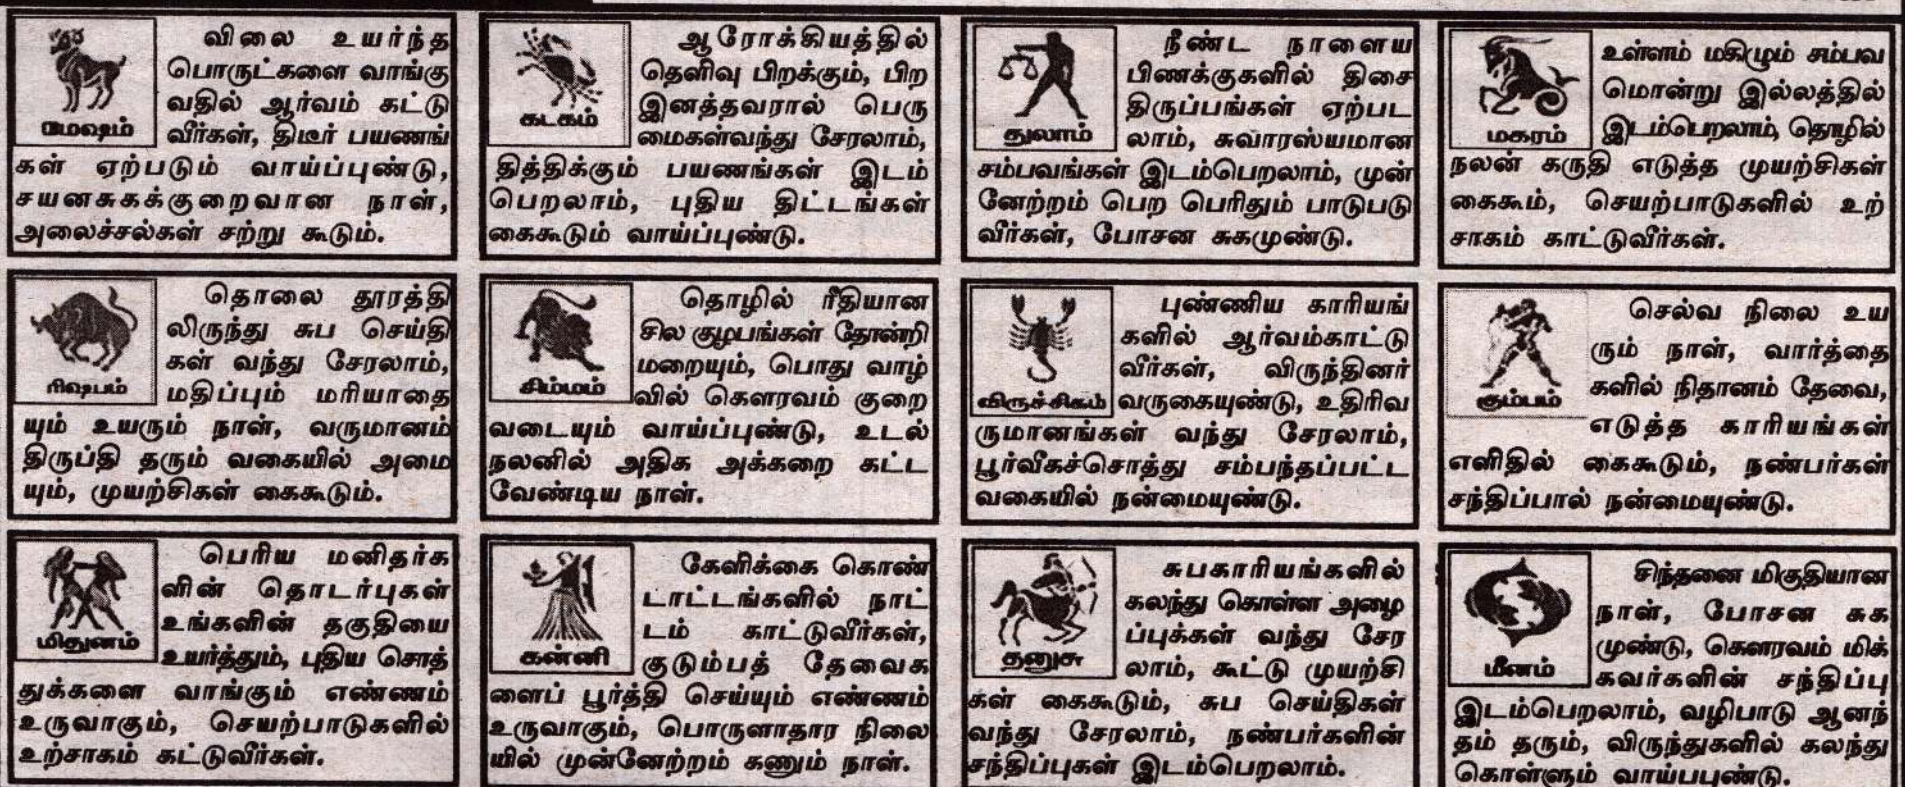 மேஷம்
விலை உயர்ந்த
பொருட்களை வாங்கு
வதில் ஆர்வம் கட்டு
வீர்கள், திடீர் பயணங்
கள் ஏற்படும் வாய்ப்புண்டு,
சயனசுகக்குறைவான நாள்,
அலைச்சல்கள் சற்று கூடும்.
ரிஷபம்
தொலை தூரத்தி
லிருந்து சுப செய்தி
கள் வந்து சேரலாம்,
மதிப்பும் மரியாதை
யும் உயரும் நாள், வருமானம்
திருப்தி தரும் வகையில் அமை
யும், முயற்சிகள் கைகூடும்.
மிதுனம்
பெரிய மனிதர்க
ளின் தொடர்புகள்
உங்களின் தகுதியை
உயர்த்தும், புதிய சொத்
துக்களை வாங்கும் எண்ணம்
உருவாகும், செயற்பாடுகளில்
உற்சாகம் கட்டுவீர்கள்.
கடகம்
ஆரோக்கியத்தில்
தெளிவு பிறக்கும், பிற
இனத்தவரால் பெரு
மைகள்வந்து சேரலாம்,
தித்திக்கும் பயணங்கள் இடம்
பெறலாம், புதிய திட்டங்கள்
கைகூடும் வாய்ப்புண்டு.
சிம்மம்
தொழில் ரீதியான
சில குழபங்கள் தோன்றி
மறையும், பொது வாழ்
வில் கௌரவம் குறை
வடையும் வாய்ப்புண்டு, உடல்
நலனில் அதிக அக்கறை கட்ட
வேண்டிய நாள்.
கன்னி
கேளிக்கை கொண்
டாட்டங்களில் நாட்
டம் காட்டுவீர்கள்,
குடும்பத் தேவைக
ளைப் பூர்த்தி செய்யும் எண்ணம்
உருவாகும், பொருளாதார நிலை
யில் முன்னேற்றம் கணும் நாள்.
துலாம்
நீண்ட நாளைய
பிணக்குகளில் திசை
திருப்பங்கள் ஏற்பட
லாம், சுவாரஸ்யமான
சம்பவங்கள் இடம்பெறலாம், முன்
னேற்றம் பெற பெரிதும் பாடுபடு
வீர்கள், போசன சுகமுண்டு.
விருச்சிகம்
புண்ணிய காரியங்
களில் ஆர்வம்காட்டு
வீர்கள், விருந்தினர்
வருகையுண்டு, உதிரிவ
ருமானங்கள் வந்து சேரலாம்,
பூர்வீகச்சொத்து சம்பந்தப்பட்ட
வகையில் நன்மையுண்டு.
தனுசு
சுபகாரியங்களில்
கலந்து கொள்ள அழை
ப்புக்கள் வந்து சேர
லாம், கூட்டு முயற்சி
கள் கைகூடும், சுப செய்திகள்
வந்து சேரலாம், நண்பர்களின்
சந்திப்புகள் இடம்பெறலாம்.
மகரம்
உள்ளம் மகிழும் சம்பவ
மொன்று இல்லத்தில்
இடம்பெறலாம், தொழில்
நலன் கருதி எடுத்த முயற்சிகள்
கைகூம், செயற்பாடுகளில் உற்
சாகம் காட்டுவீர்கள்.
கும்பம்
செல்வ நிலை உய
ரும் நாள், வார்த்தை
களில் நிதானம் தேவை,
எடுத்த காரியங்கள்
எளிதில் கைகூடும், நண்பர்கள்
சந்திப்பால் நன்மையுண்டு.
மீனம்
சிந்தனை மிகுதியான
நாள், போசன சுக
முண்டு, கௌரவம் மிக்
கவர்களின் சந்திப்பு
இடம்பெறலாம், வழிபாடு ஆனந்
தம் தரும், விருந்துகளில் கலந்து
கொள்ளும் வாய்பபுண்டு.